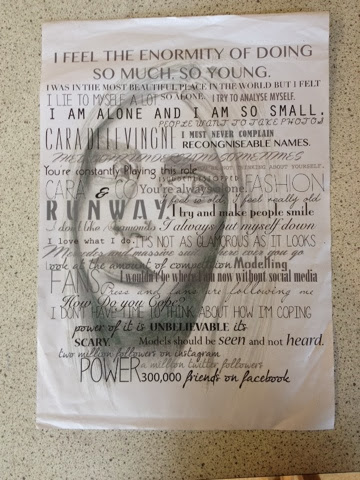 I FEEL THE ENORMITY OF DOING
SO MUCH. SO YOUNG.
I WAS IN THE MOST BEAUTIFUL PLACE IN THE WORLD BUT I FELT
I LIE TO MYSELF A LOT SO ALONE. I TRY TO ANALYSE MYSELF.
I AM ALONE AND I AM SO SMALL,
PEOPLE WANT TO TAKE PHOTOS
CARA DELEVINGNE I MUST NEVER COMPLAIN
RECONGNISEABLE NAMES.
SOMETIMES
TALKING ABOUT YOURSELF.
You're constantly Playing this role
CARA You're always alone. FASHION
& I feel so old. I feel really old
RUNWAY. I try and make people smile
I don't like my I always put myself down
I love what I do. IT'S NOT AS GLAMOROUS AS IT LOOKS
Murder and massive ever were ever you go
look at the amount of competition Modelling
FAME I wouldn't be where I am now without social media
Press and fans are following me
How Do you Cope?
I DON'T HAVE TIME TO THINK ABOUT HOW I'M COPING
power of it is UNBELIEVABLE its
SCARY. Models should be seen and not heard.
two million followers on instagram
POWER a million twitter followers
300,000 friends on facebook